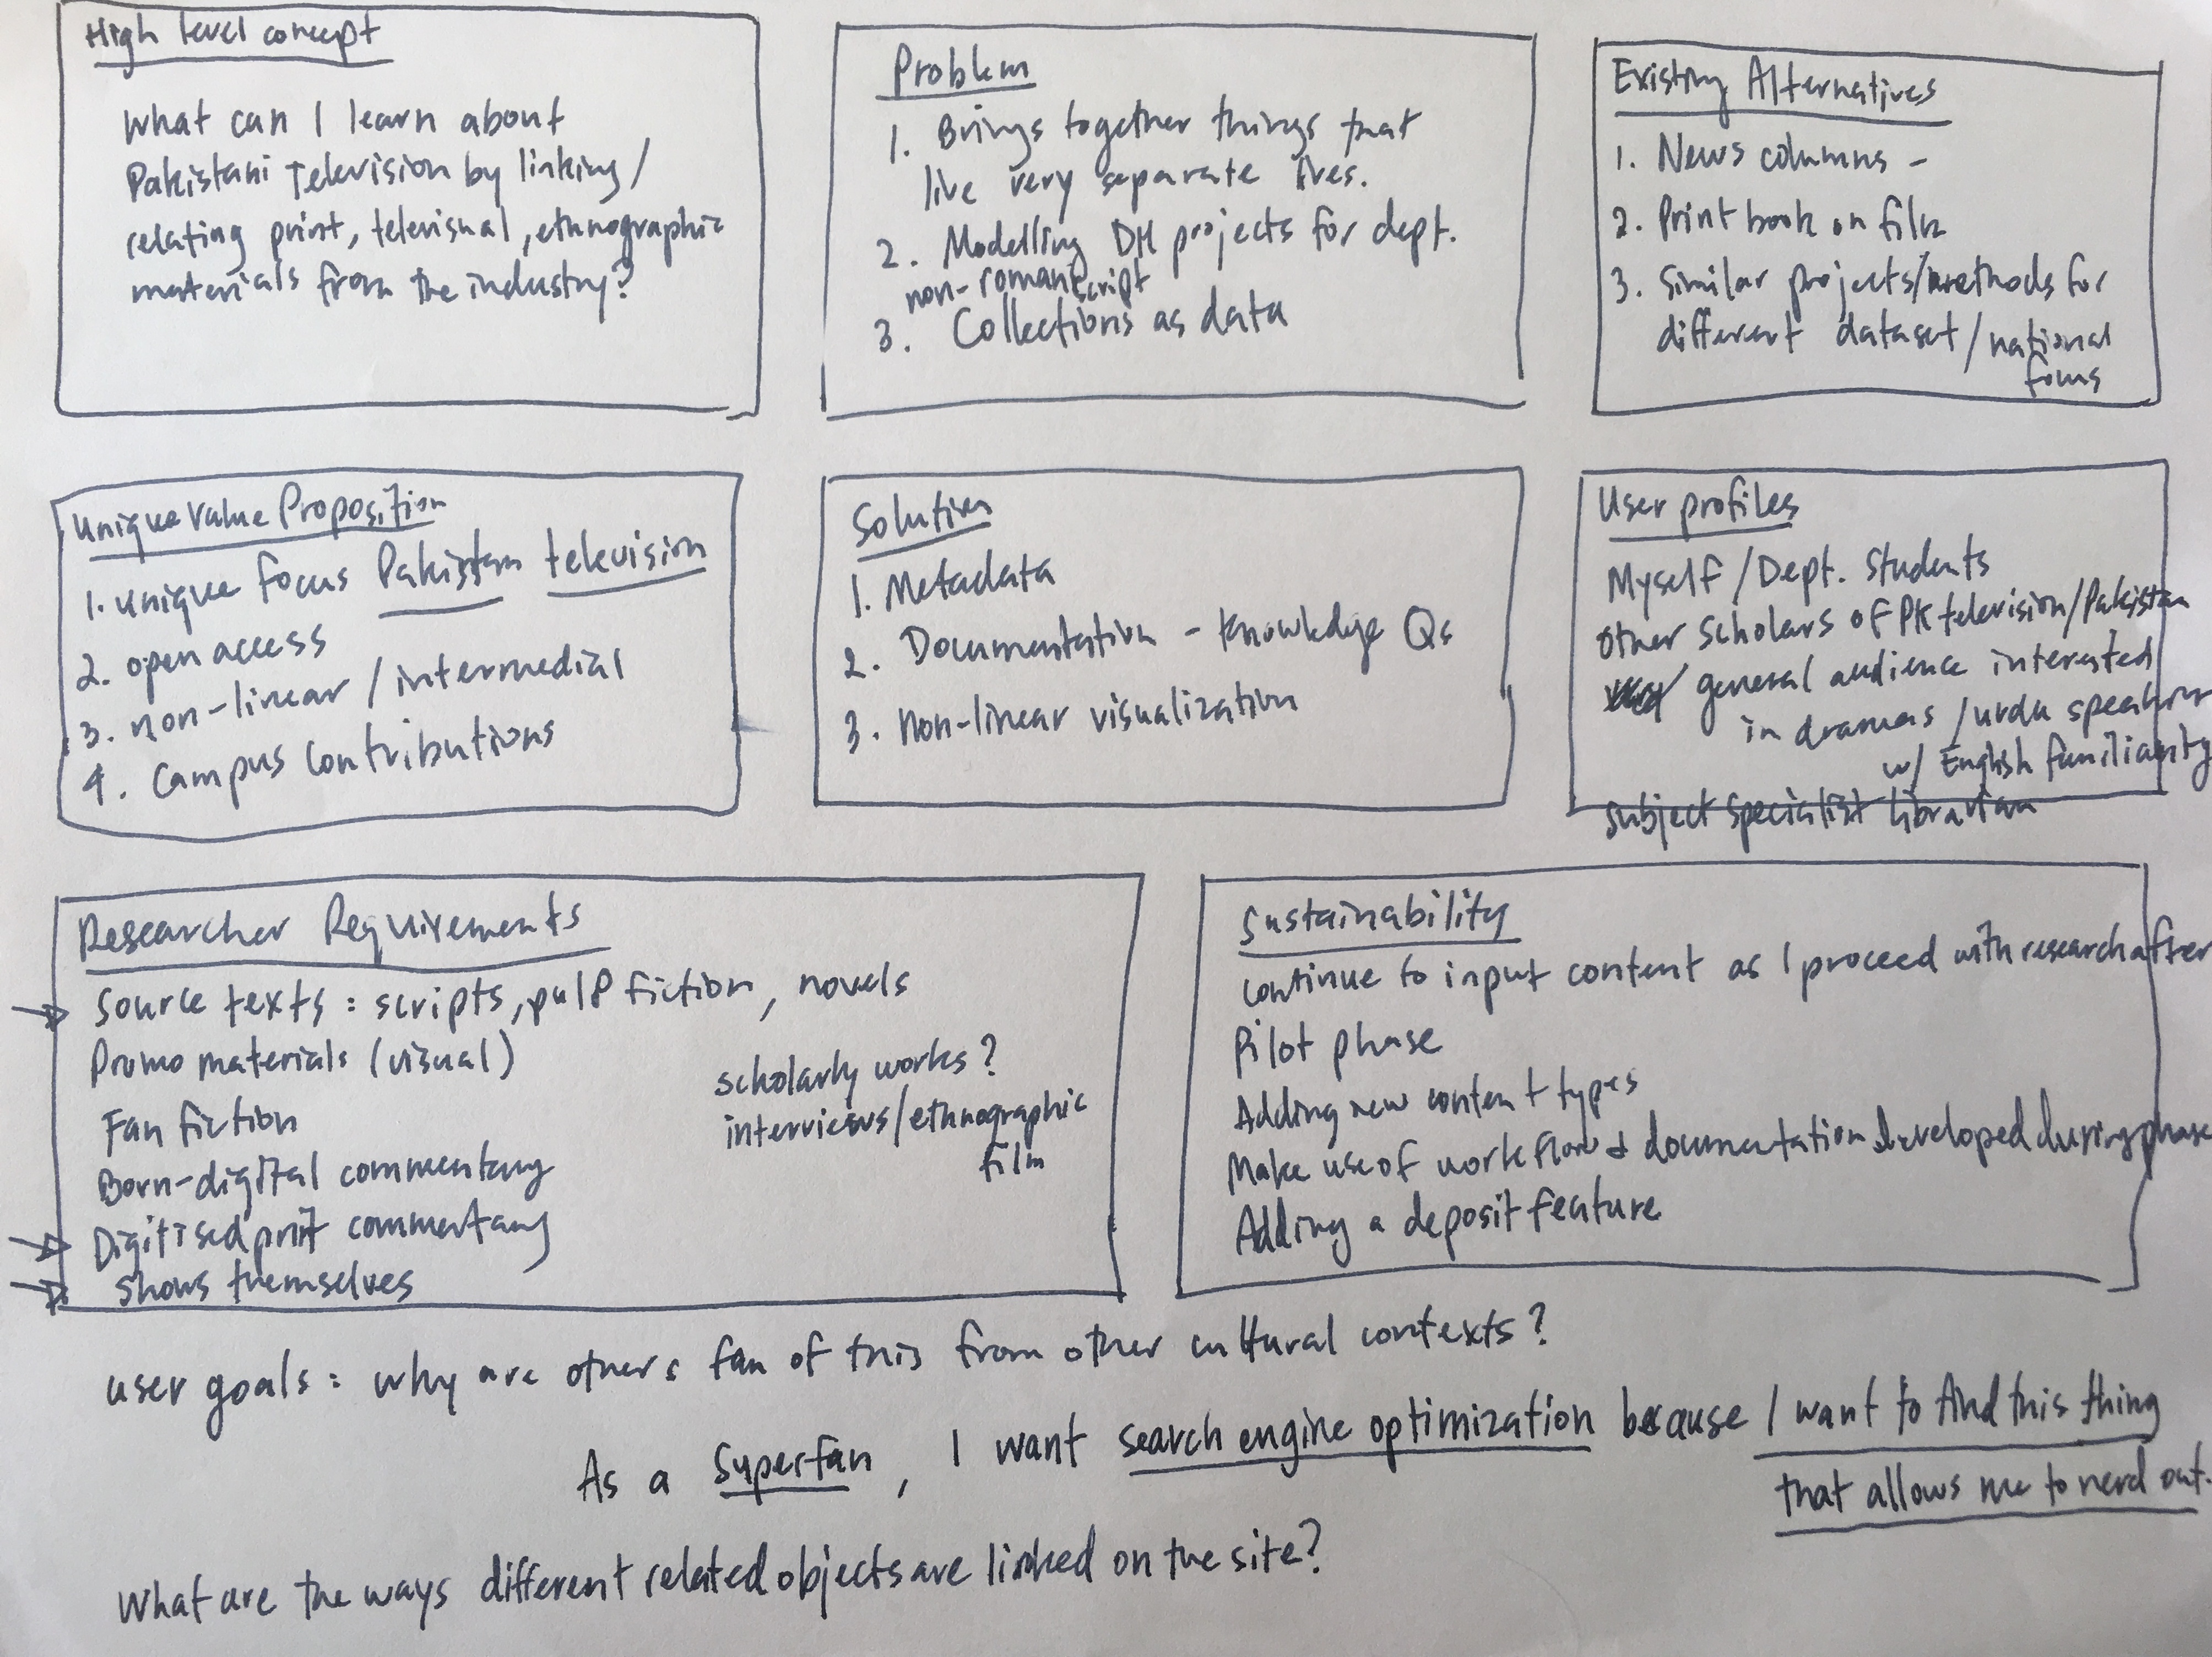 High level concept
What can I learn about
Pakistani Television by linking/
relating print, televisual, ethnographic
materials from the industry?
Problem
1. Brings together things that
live very separate lives.
2. Modelling DH projects for dept.
non-roman script
3. Collections as data
Existing Alternatives
1. News columns -
2. Print book on film
3. Similar projects/methods for
different dataset/national
focus
Unique Value Proposition
1. unique focus Pakistan television
2. open access
3. non-linear/intermedial
4. Campus Contributions
Solution
1. Metadata
2. Documentation - knowledge Qs
3. Non-linear visualization
User profiles
Myself/Dept. Students
Other Scholars of PK television/Pakistan
general audience interested
in dramas/urdu speakers
w/ English familiarity
subject specialist librarian
Researcher Requirements
Source texts: scripts, pulp fiction, novels
Promo materials (visual)
Fan fiction
Born-digital commentary
Digitised print commentary
Shows themselves
scholarly works?
interviews/ethnographic
film
Sustainability
continue to input content as I proceed with research after
Pilot phase
Adding new content types
Make use of workflow & documentation developed during phase
Adding a deposit feature
user goals: why are others fan of this from other cultural contexts?
As a Superfan, I want search engine optimization because I want to find this thing
that allows me to nerd out.
What are the ways different related objects are linked on the site?